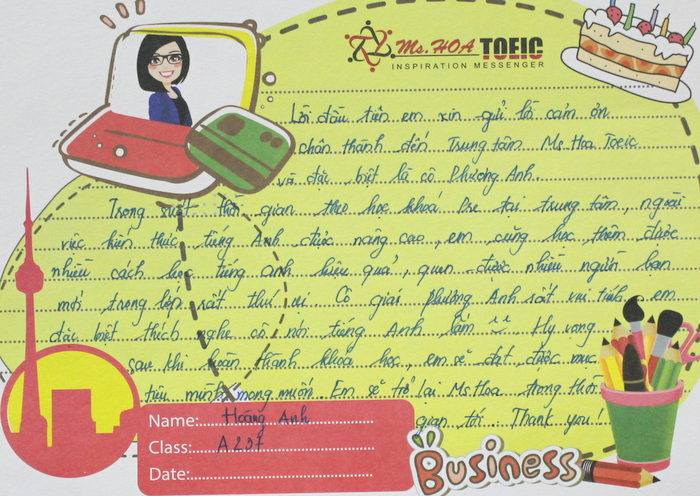 Ms. HOA TOEIC
INSPIRATION MESSENGER
Lời đầu tiên em xin gửi lời cảm ơn
chân thành đến Trung tâm Ms Hoa Toeic
và đặc biệt là cô Phương Anh.
Trong suốt thời gian theo học khoá Pre tại trung tâm, ngoài
việc kiến thức tiếng Anh được nâng cao, em cũng học thêm được
nhiều cách học tiếng anh hiệu quả, quen được nhiều người bạn
mới trong lớp rất thú vị. Cô giáo Phương Anh rất vui tính, em
đặc biệt thích nghe cô nói tiếng Anh lắm. Hy vọng
sau khi hoàn thành khoá học, em sẽ đạt được mục
tiêu mình mong muốn. Em sẽ trở lại Ms Hoa trong thời
gian tới. Thank you!
Name: Hoàng Anh
Class: A297
Date:
Business